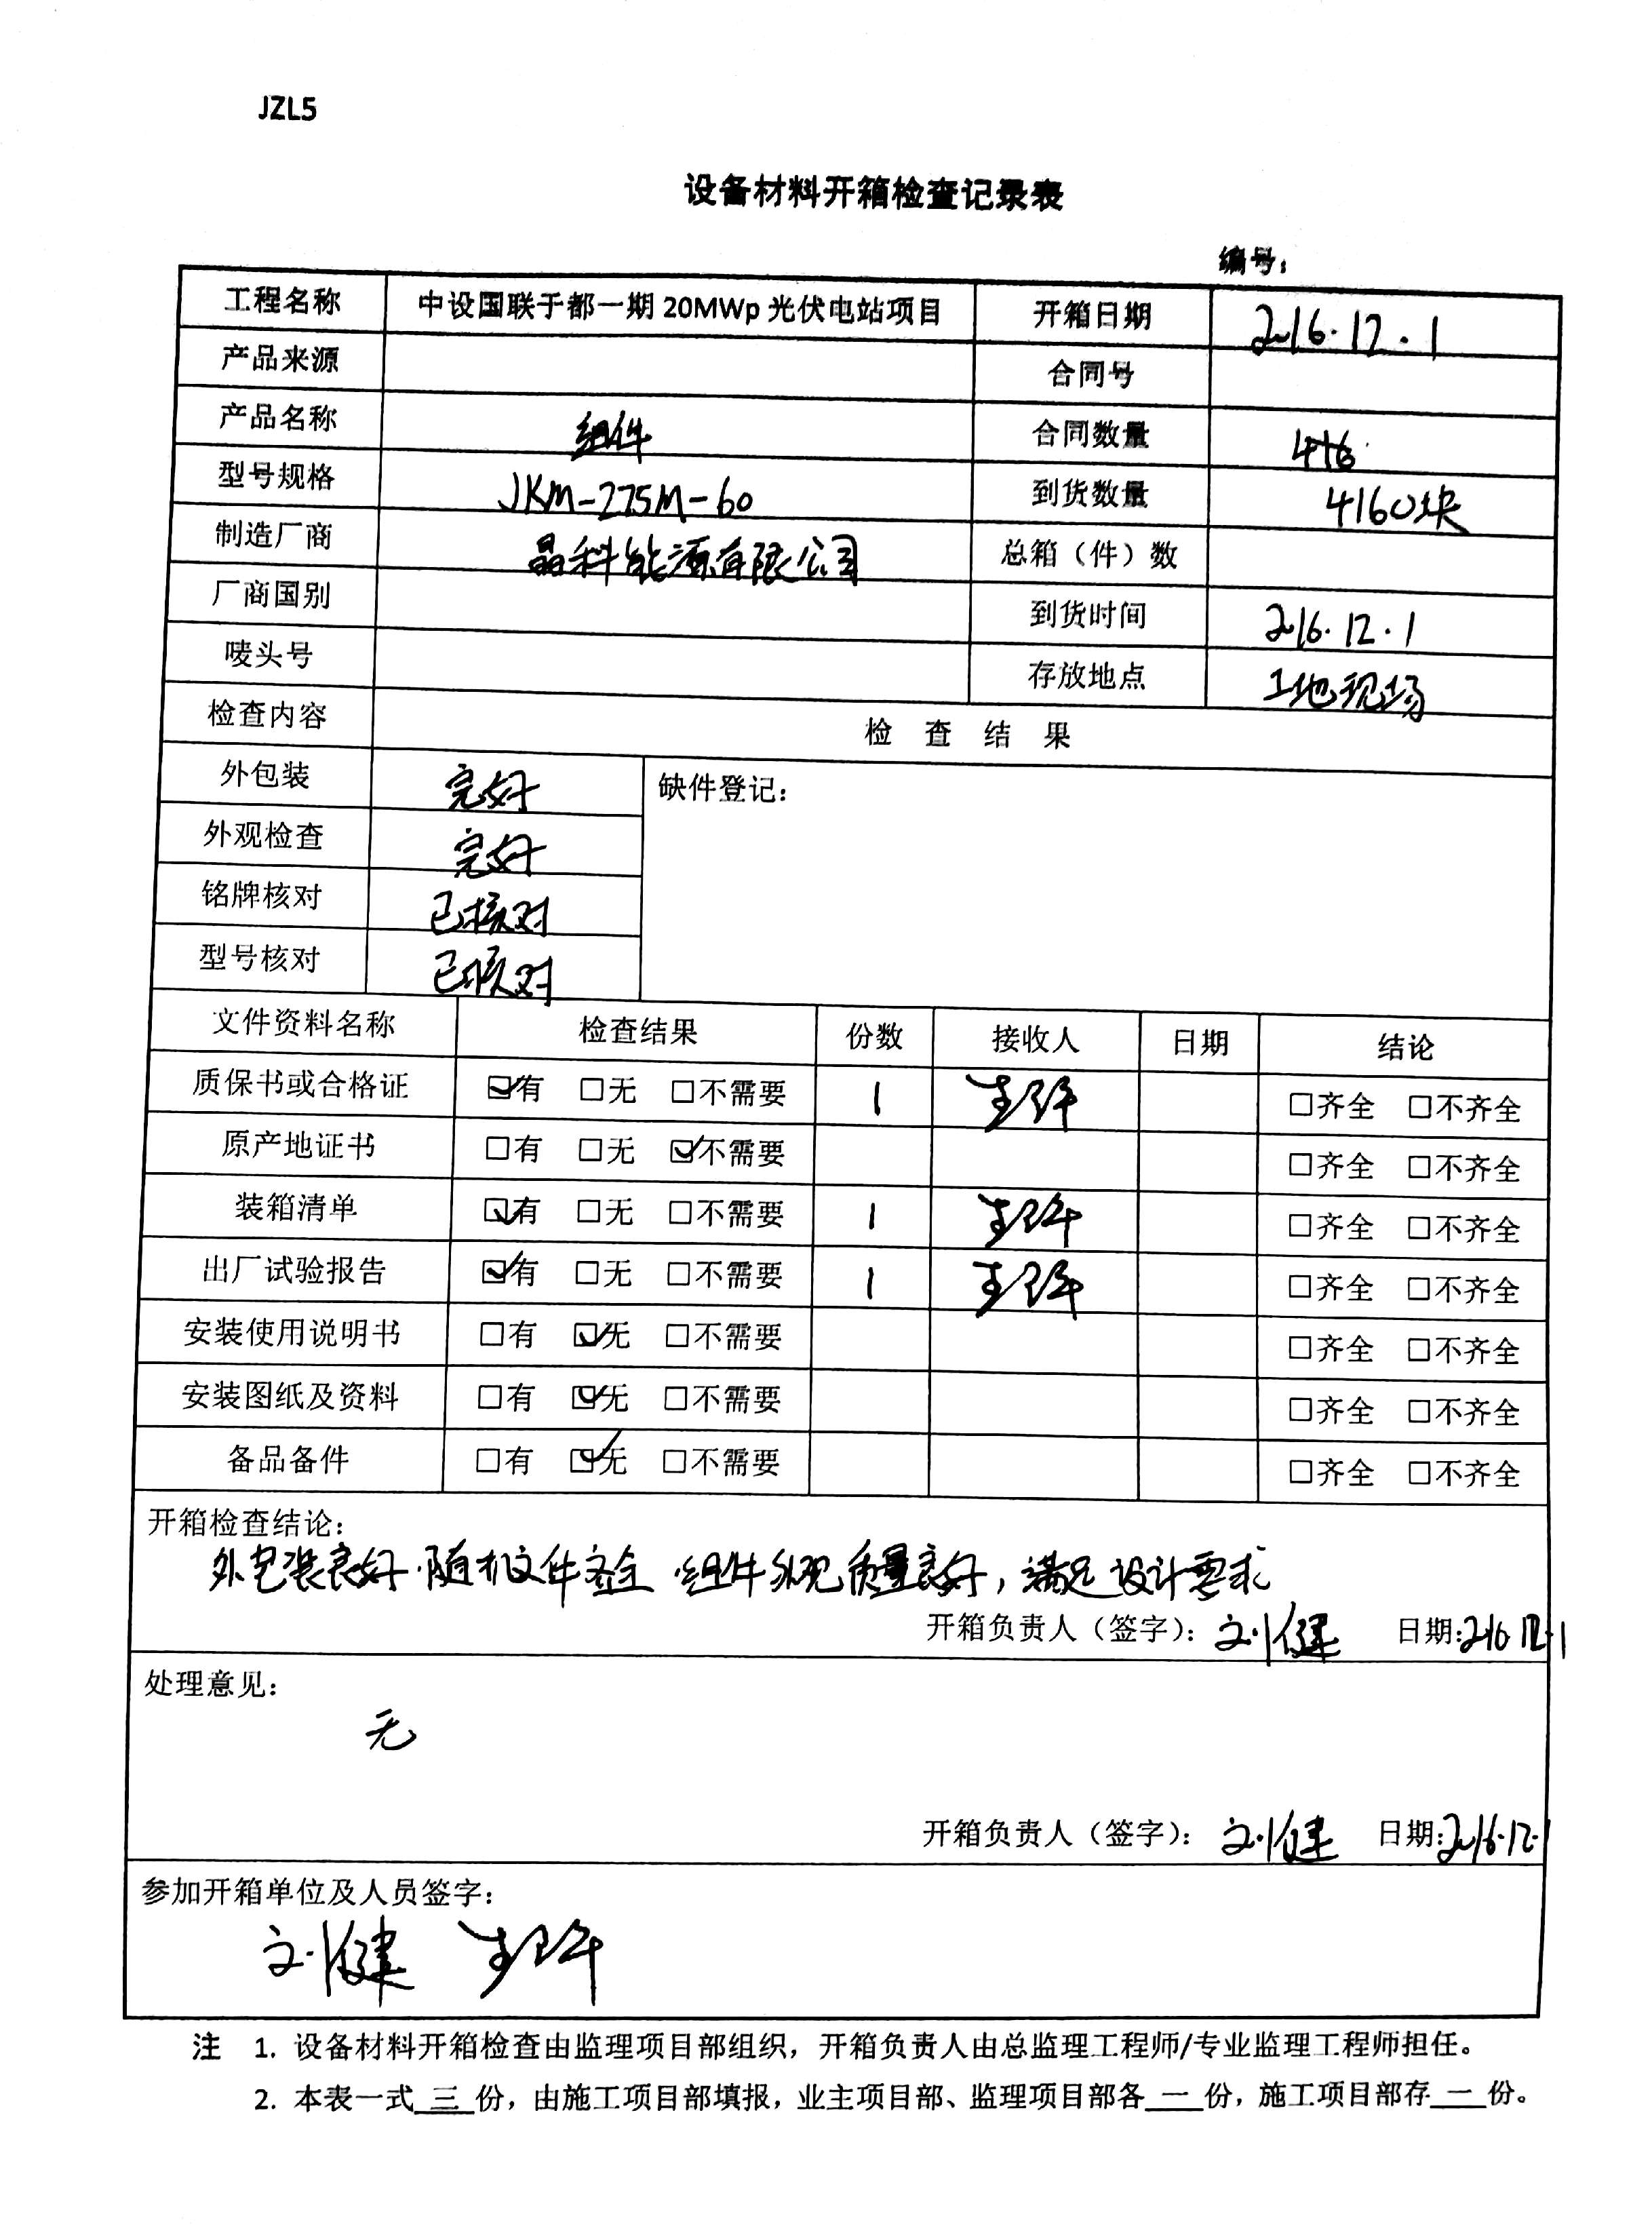 JZL5
设备材料开箱检查记录表
编号：
工程名称 中设国联于都一期 20MWp 光伏电站项目 开箱日期 2016.12.1
产品来源 合同号
产品名称 组件 合同数量 416
型号规格 JKM-275M-60 到货数量 4160块
制造厂商 晶科能源有限公司 总箱（件）数
厂商国别 到货时间 2016.12.1
唛头号 存放地点 工地现场
检查内容 检 查 结 果
外包装 完好 缺件登记：
外观检查 完好
铭牌核对 已核对
型号核对 已核对
文件资料名称 检查结果 份数 接收人 日期 结论
质保书或合格证 ☑有 □无 □不需要 1 □齐全 □不齐全
原产地证书 □有 □无 ☑不需要 □齐全 □不齐全
装箱清单 ☑有 □无 □不需要 1 □齐全 □不齐全
出厂试验报告 ☑有 □无 □不需要 1 □齐全 □不齐全
安装使用说明书 □有 ☑无 □不需要 □齐全 □不齐全
安装图纸及资料 □有 ☑无 □不需要 □齐全 □不齐全
备品备件 □有 ☑无 □不需要 □齐全 □不齐全
开箱检查结论：
外包装良好.随机文件齐全 组件外观质量良好，满足设计要求
开箱负责人（签字）： 刘健 日期:2016.12.1
处理意见：
无
开箱负责人（签字）： 刘健 日期:2016.12.1
参加开箱单位及人员签字：
刘健
注 1. 设备材料开箱检查由监理项目部组织，开箱负责人由总监理工程师/专业监理工程师担任。
2. 本表一式 三 份，由施工项目部填报，业主项目部、监理项目部各 一 份，施工项目部存 一 份。